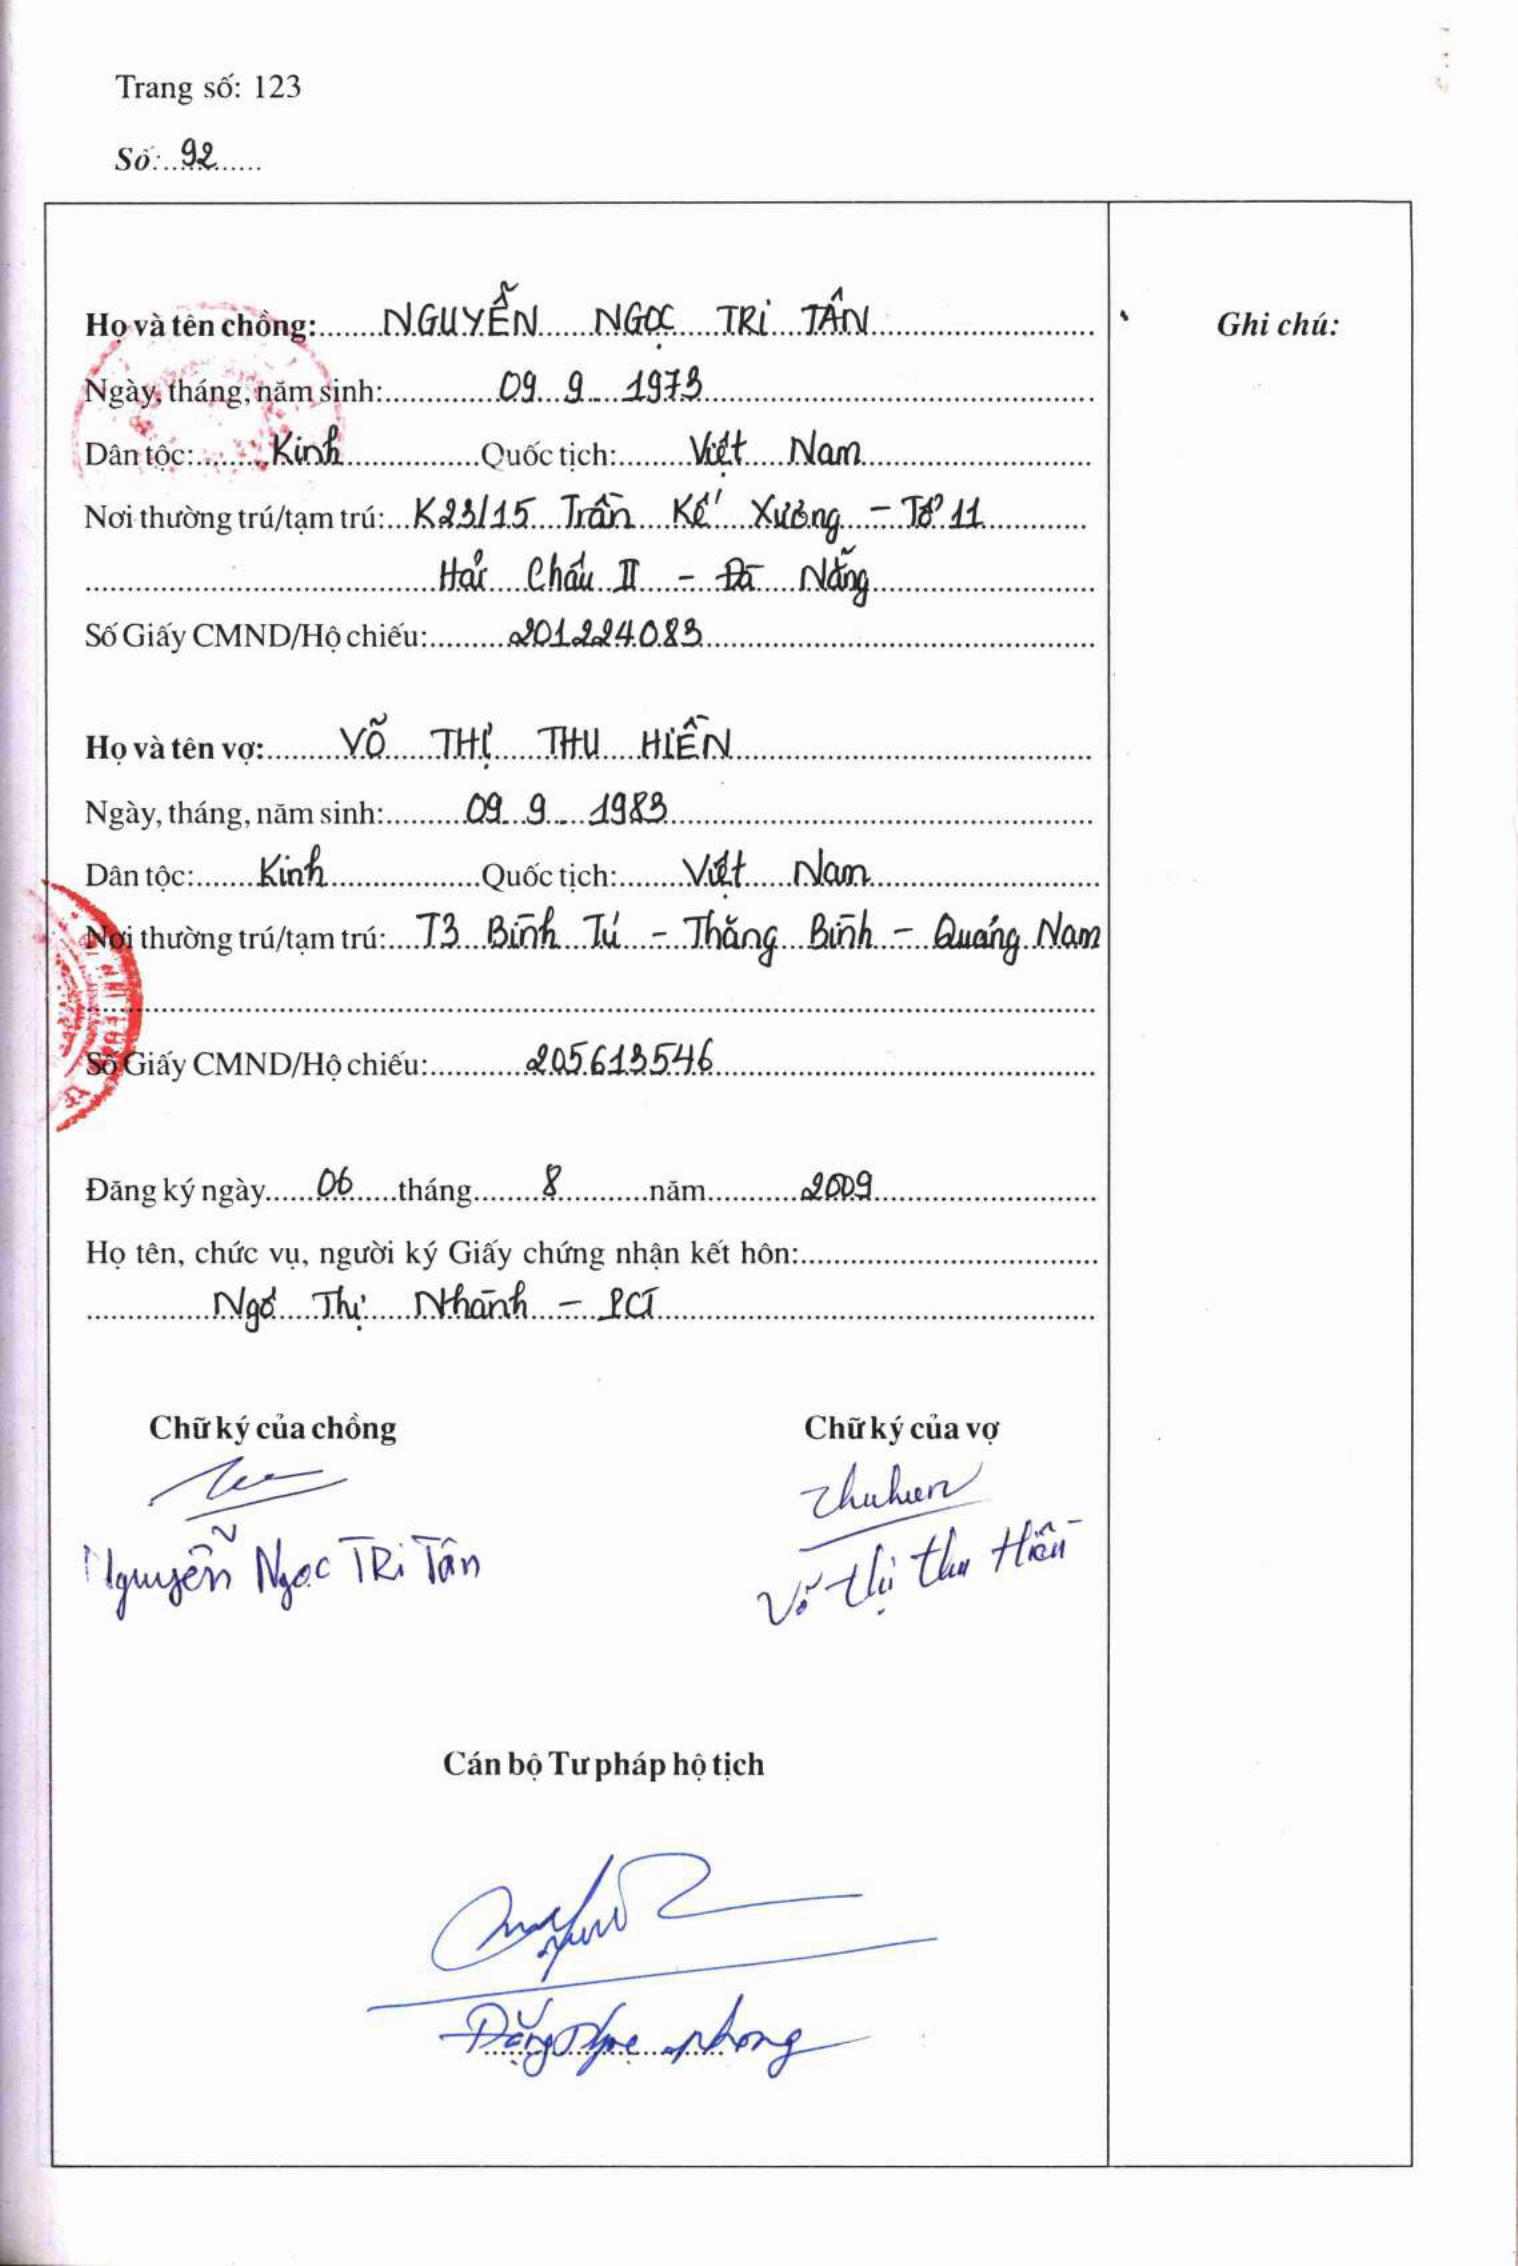 Trang số: 123
Số: 92
Họ và tên chồng: NGUYỄN NGỌC TRI TÂN
Ghi chú:
Ngày, tháng, năm sinh: 09 9 1973
Dân tộc: Kinh Quốc tịch: Việt Nam
Nơi thường trú/tạm trú: K23/15 Trần Kế Xương - Tổ 11
Hải Châu II - Đà Nẵng
Số Giấy CMND/Hộ chiếu: 201224083
Họ và tên vợ: VÕ THỊ THU HIỀN
Ngày, tháng, năm sinh: 09 9 1983
Dân tộc: Kinh Quốc tịch: Việt Nam
Nơi thường trú/tạm trú: T3 Bình Tú - Thăng Bình - Quảng Nam
Số Giấy CMND/Hộ chiếu: 205613546
Đăng ký ngày 06 tháng 8 năm 2009
Họ tên, chức vụ, người ký Giấy chứng nhận kết hôn:
Ngô Thị Nhành - PCT
Chữ ký của chồng Chữ ký của vợ
Thuhien
Nguyễn Ngọc TRi Tân Võ Thị Thu Hiền
Cán bộ Tư pháp hộ tịch
Đặng phong